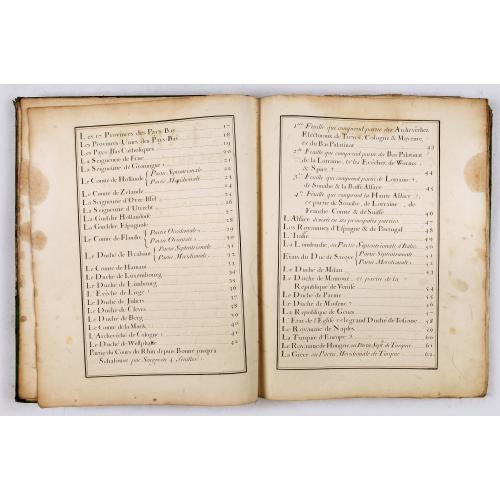 Les 17 Provinces des Pays Bas 17
Les Provinces Unies des Pays-Bas 18
Les Pays-Bas Catholiques 19
La Seigneurie de Frise
La Seigneurie de Groningue
Le Comté de Hollande Partie Septentrionale 22
Partie Méridionale 23
Le Comté de Zelande 24
La Seigneurie d'Over-Issel
La Seigneurie d'Utrecht 26
La Gueldre Hollandoise 27
La Gueldre Espagnole 28
Le Comté de Flandre Partie Occidentale 29
Partie Orientale 30
Le Duché de Brabant Partie Septentrionale 31
Partie Méridionale 32
Le Comté de Hainaut 33
Le Duché de Luxembourg 34
Le Duché de Limbourg
L'Evêché de Liege 36
Le Duché de Juliers 37
Le Duché de Cleves 38
Le Duché de Berg 39
Le Comté de la Mark 40
L'Archevêché de Cologne 41
Le Duché de Westphalie 42
Partie du Cours du Rhin depuis Bonne jusqu'a
4 feuilles
1ere Feuille qui comprend partie des Archevêchez
Electoraux de Treves, Cologne & Mayence,
& du Bas Palatinat 43
2de Feuille qui comprend partie du Bas Palatinat
de la Loraine, & les Evêchez de Worms
& Spire 44
3e Feuille qui comprend partie de Loraine,
de Souabe & la Basse Alsace 45
4e Feuille qui comprend la Haute Alsace,
& partie de Souabe, de Loraine, de
Franche Comté & de Suisse 46
L'Alsace divisée en ses principales parties 47
Les Royaumes d'Espagne & de Portugal 48
L'Italie 49
La Lombardie, ou Partie Septentrionale d'Italie 50
Etats du Duc de Savoye Partie Septentrionale 51
Partie Méridionale
Le Duché de Milan
Le Duché de Mantoue, et partie de la
Republique de Venise 54
Le Duché de Parme 55
Le Duché de Modene 56
La Republique de Genes 57
L'Etat de l'Eglise et le grand Duché de Toscane 58
Le Royaume de Naples 59
La Turquie d'Europe 60
Le Royaume de Hongrie, ou Partie Sept. de Turquie 61
La Grece ou Partie Méridionale de Turquie 62